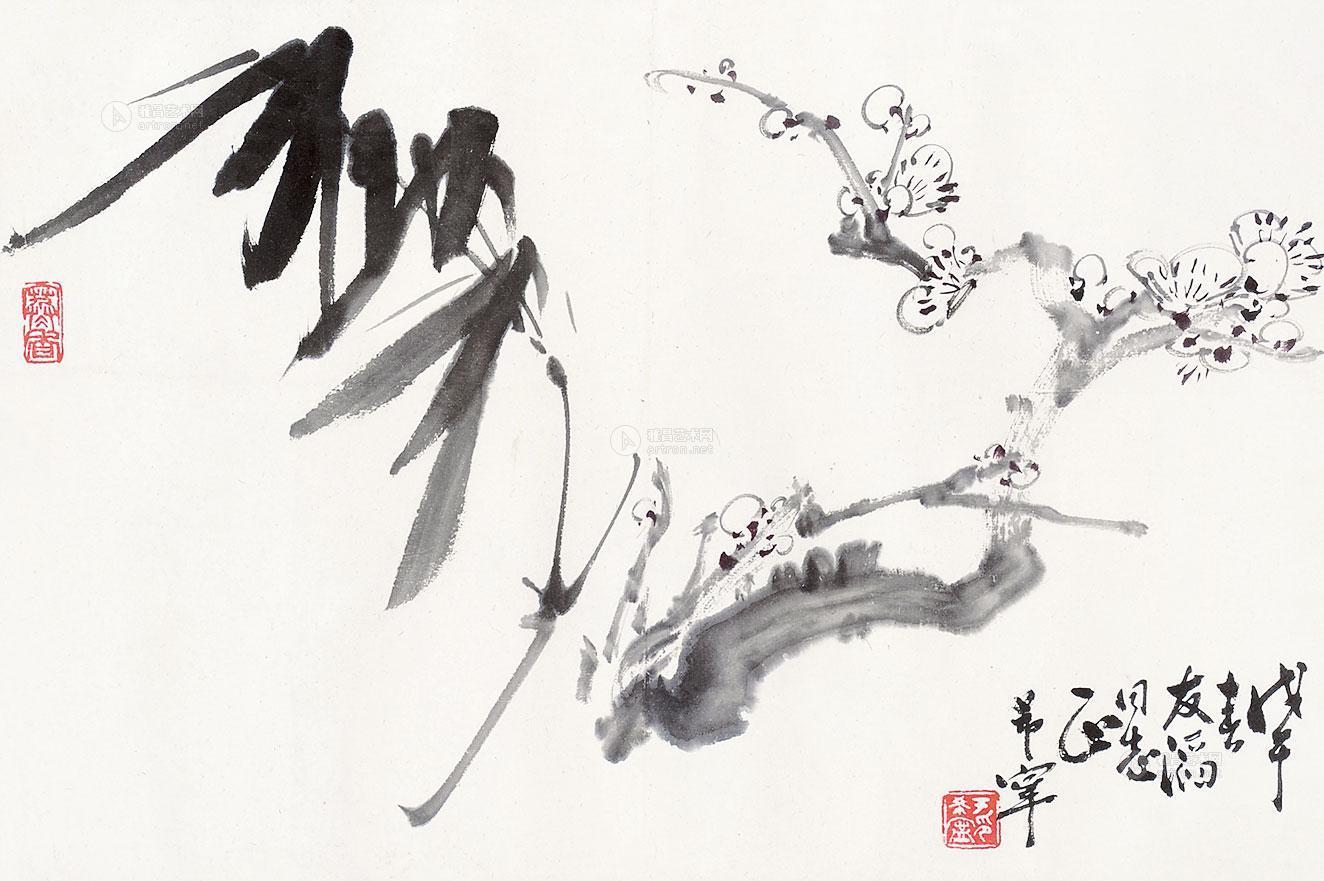 戊午
春
友滔
同志
正
希寧
雅昌艺术网
artron.net
雅昌艺术网
artron.net